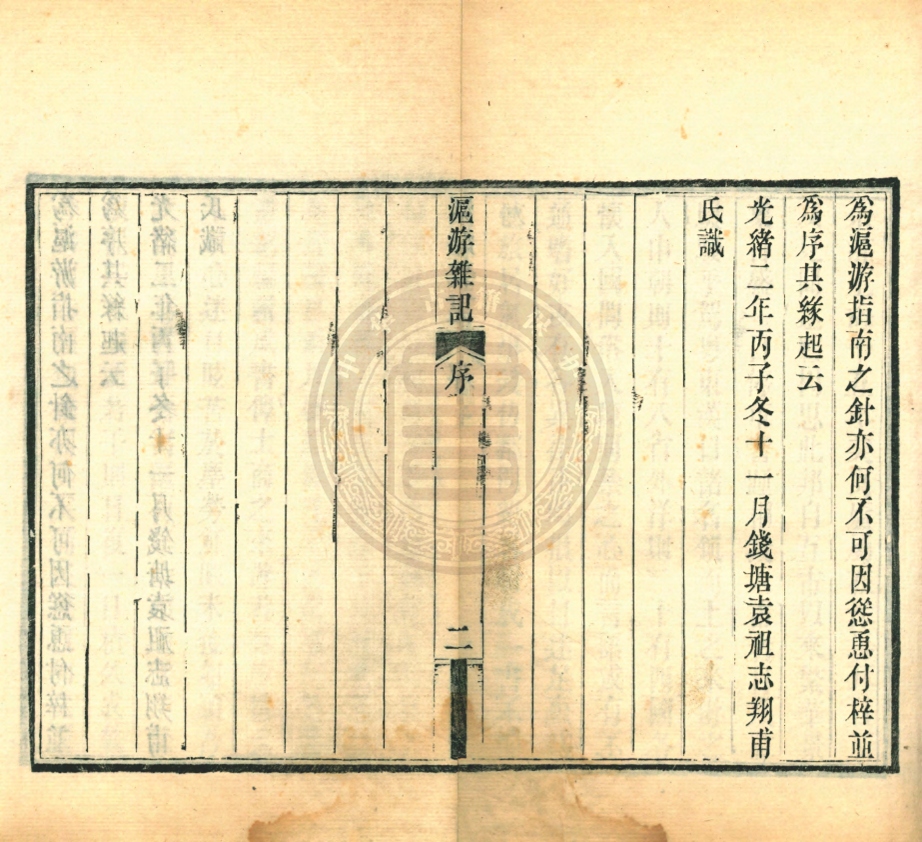 為滬游指南之針亦何不可因慫恿付梓並
為序其緣起云
光緒二年丙子冬十一月錢塘袁祖志翔甫
氏識
滬游雜記
序
二